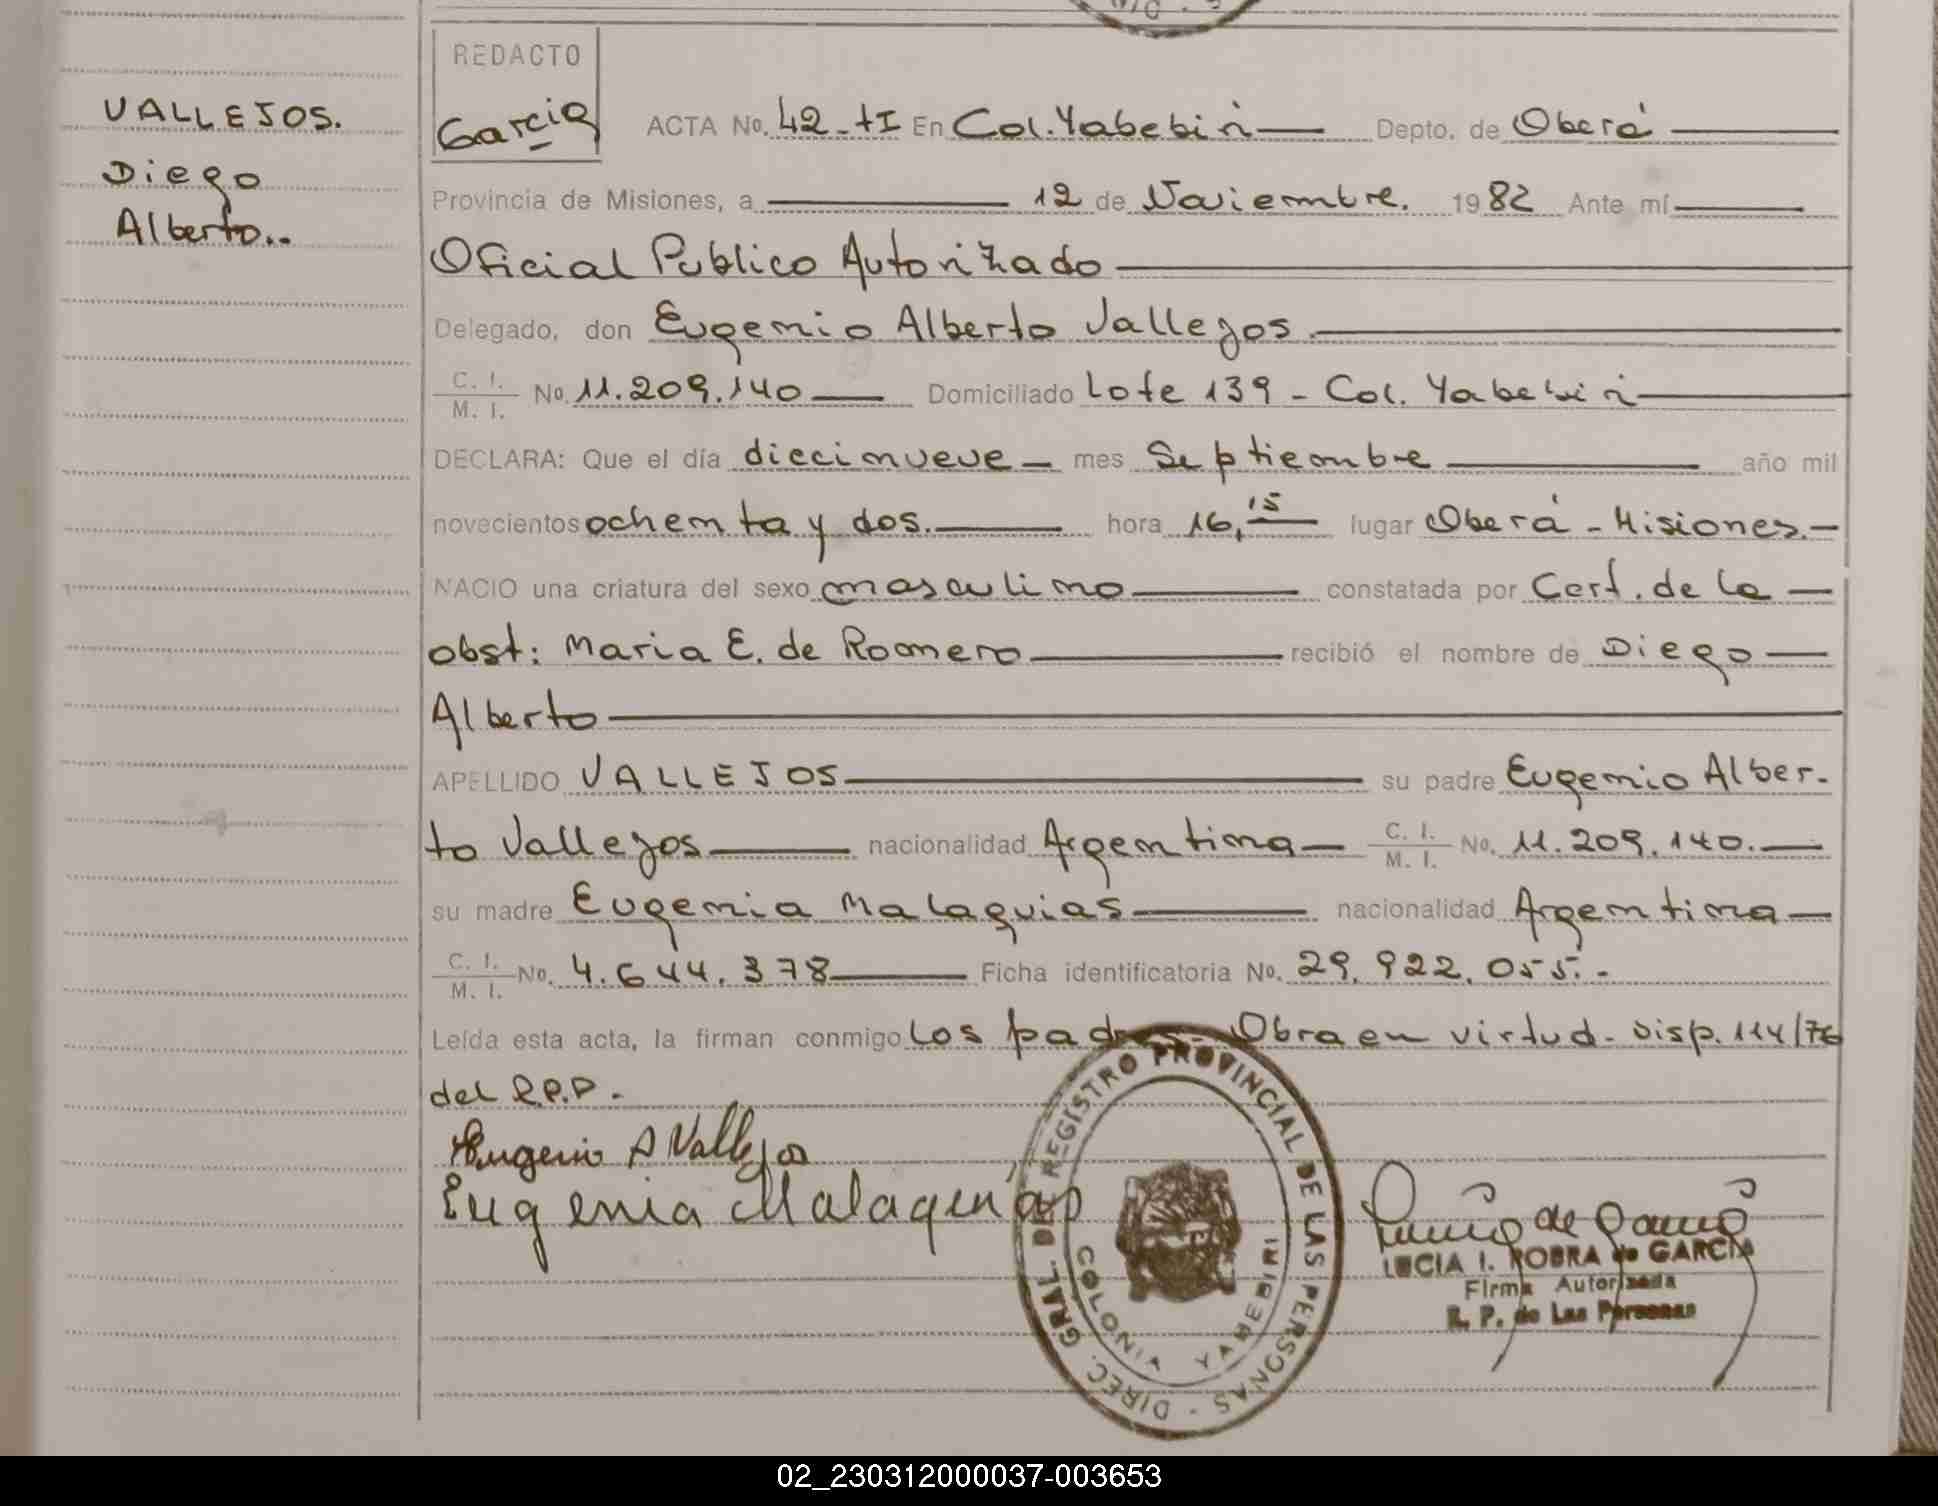 REDACTO
Garcia
VALLEJOS.
Diego
Alberto..
ACTA No. 42-tI En Col. Yabebiri Depto. de Oberá
Provincia de Misiones, a 12 de Noviembre. 1982 Ante mí
Oficial Publico Autorizado
Delegado, don Eugenio Alberto Vallejos.
C. I. / M. I. No. 11.209.140 Domiciliado Lote 139 - Col. Yabebiri
DECLARA: Que el día diecinueve mes Septiembre año mil
novecientos ochenta y dos. hora 16,15 lugar Oberá - Misiones.
NACIO una criatura del sexo masculino constatada por Cert. de la
obst: Maria E. de Romero recibió el nombre de Diego
Alberto
APELLIDO VALLEJOS su padre Eugenio Alber-
to Vallejos nacionalidad Argentina C. I. / M. I. No. 11.209.140.
su madre Eugenia Malaquias nacionalidad Argentina
C. I. / M. I. No. 4.644.378 Ficha identificatoria No. 29.922.055.-
Leída esta acta, la firman conmigo los padres. Obra en virtud. Disp. 114/76
del R.P.P.
Eugenio A Vallejos
Eugenia Malaquias
DIREC. GRAL. DEL REGISTRO PROVINCIAL DE LAS PERSONAS -
COLONIA YABEBIRI
LUCIA I. ROBRA de GARCIA
Firma Autorizada
R. P. de Las Personas
02_230312000037-003653